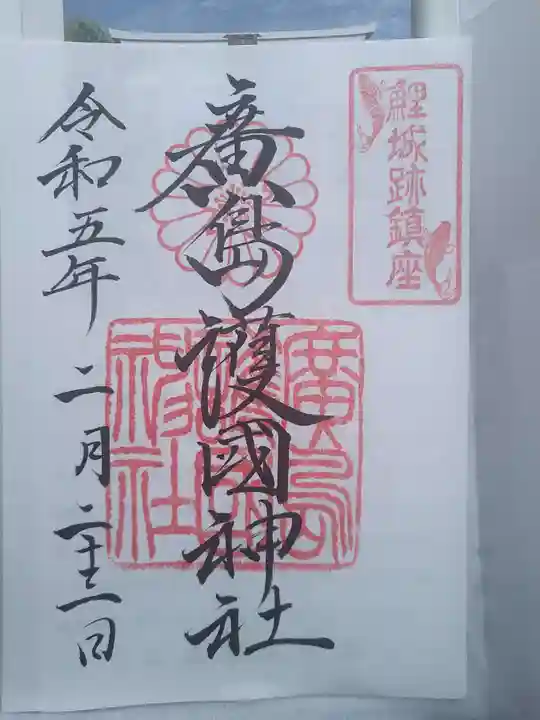 鯉城跡鎮座
廣島護國神社
廣島護國神社
令和五年二月二十二日